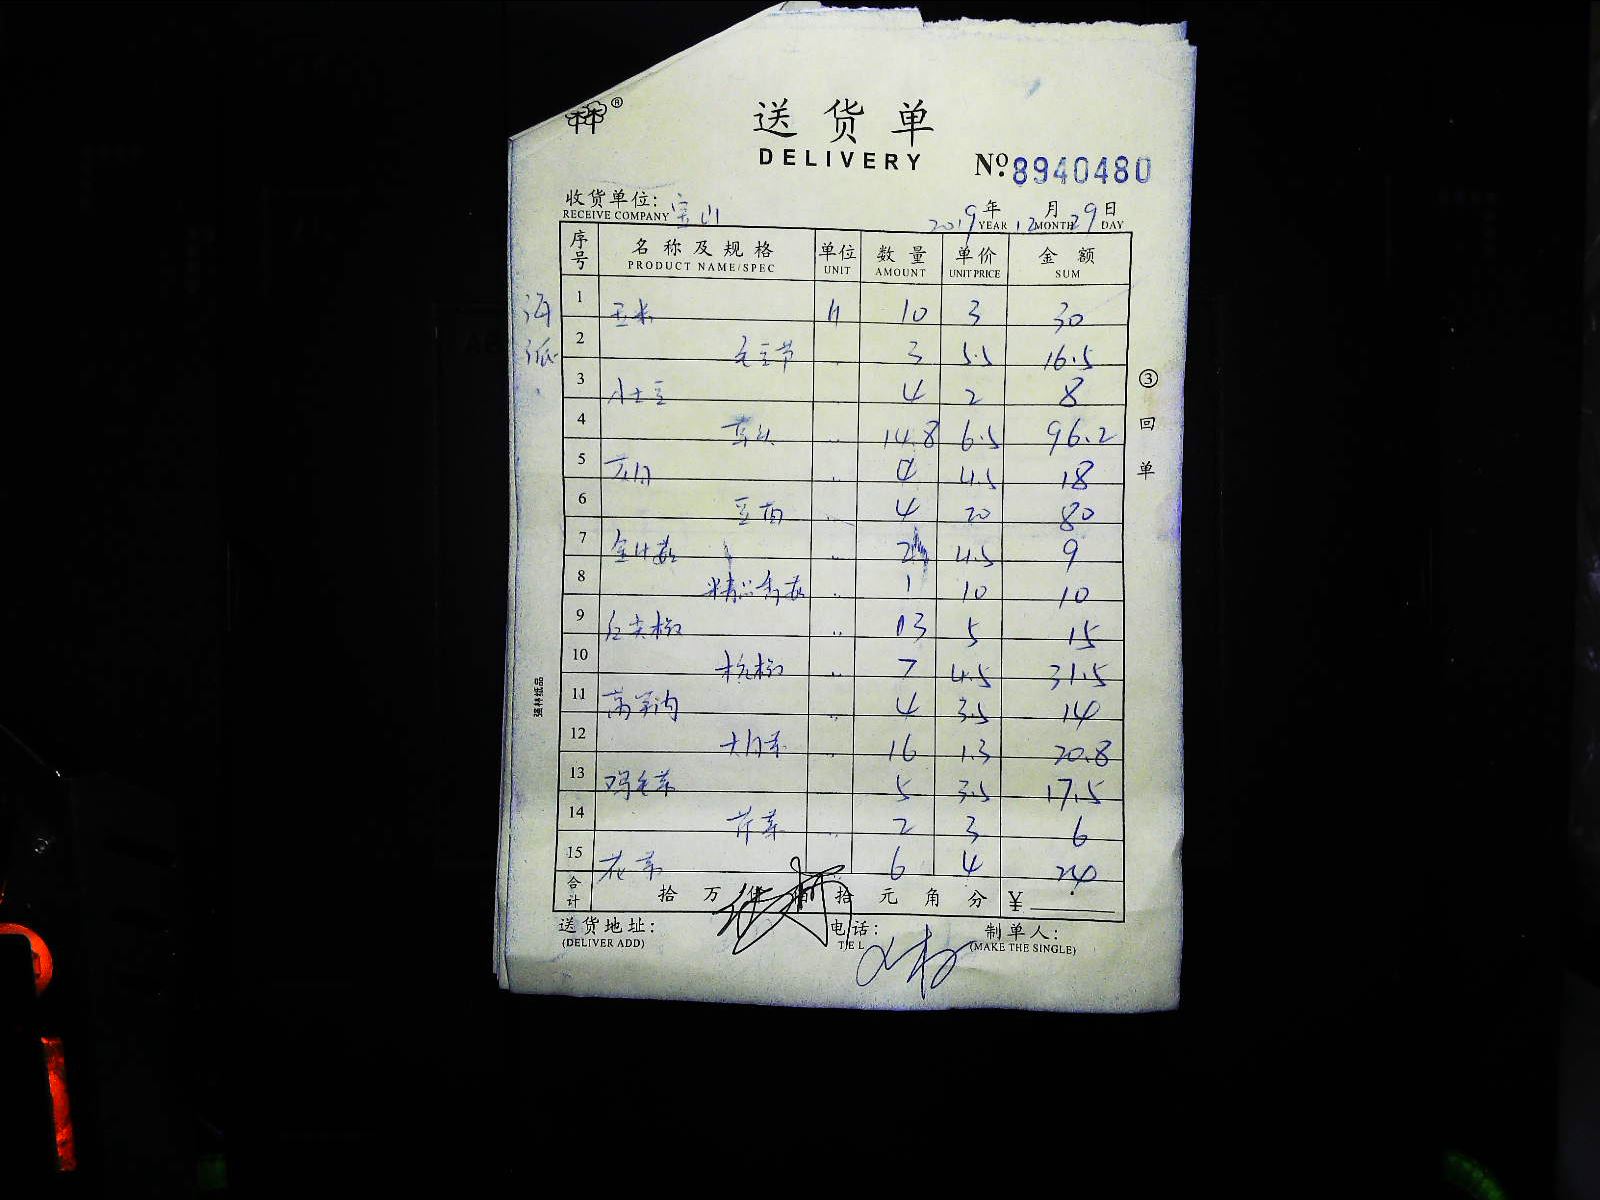 林林®
送货单
DELIVERY
№ 8940480
收货单位: 宝山
RECEIVE COMPANY
2019年12月29日
YEAR MONTH DAY
序号 名称及规格 单位 数量 单价 金额
PRODUCT NAME/SPEC UNIT AMOUNT UNIT PRICE SUM
1 玉米 11 10 3 30
2 毛豆节 3 5.5 16.5
3 小土豆 4 2 8
4 14.8 6.5 96.2
5 4 4.5 18
6 豆苗 4 20 80
7 金针菇 2 4.5 9
8 精心香菇 1 10 10
9 红尖椒 3 5 15
10 杭椒 7 4.5 31.5
11 4 3.5 14
12 16 1.3 20.8
13 鸡毛菜 5 3.5 17.5
14 芹菜 2 3 6
15 花菜 6 4 24
合计 拾万仟佰拾元角分 ¥
送货地址: 电话: 制单人:
(DELIVER ADD) TEL (MAKE THE SINGLE)
③回单
强林纸品